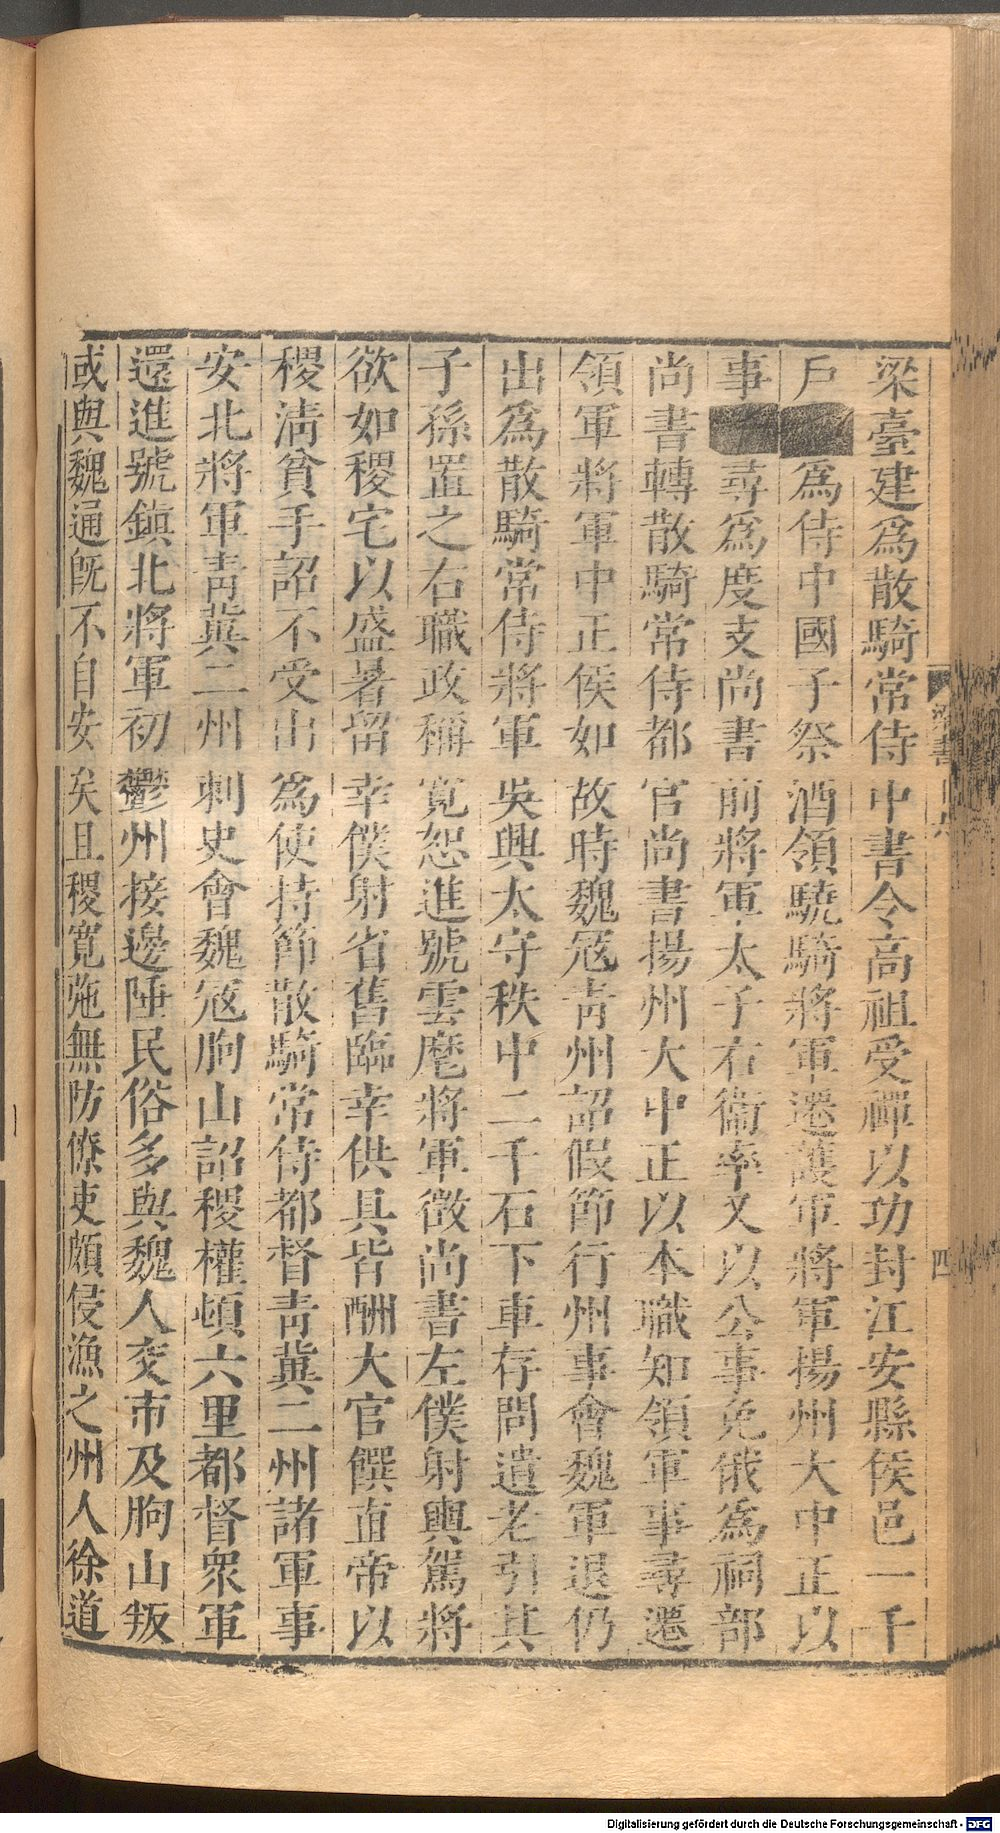 梁臺建爲散騎常侍中書令高祖受禪以功封江安縣侯邑一千
戶爲侍中國子祭酒領驍騎將軍遷護軍將軍揚州大中正以
事尋爲度支尚書前將軍太子右衞率又以公事免俄爲祠部
尚書轉散騎常侍都官尚書揚州大中正以本職知領軍事尋遷
領軍將軍中正侯如故時魏寇青州詔假節行州事會魏軍退仍
出爲散騎常侍將軍吳興太守秩中二千石下車存問遺老引其
子孫置之右職政稱寬恕進號雲麾將軍徵尚書左僕射輿駕將
欲如稷宅以盛暑留幸僕射省舊臨幸供具皆酬大官饌直帝以
稷清貧手詔不受出爲使持節散騎常侍都督青冀二州諸軍事
安北將軍青冀二州刺史會魏寇朐山詔稷權頓六里都督衆軍
還進號鎮北將軍初鬱州接邊陲民俗多與魏人交市及朐山叛
或與魏通旣不自安矣且稷寬弛無防僚吏頗侵漁之州人徐道
四
Digitalisierung gefördert durch die Deutsche Forschungsgemeinschaft - DFG